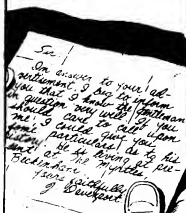 Sir
In answer to your ad-
vertisement, I beg to inform
you that I know the gentleman
in question very well. If you
should care to call upon
me I could give you
some particulars as to his
history. He is living at pre-
sent at The Myrtles,
Beckenham.
Yours faithfully
J. Davenport